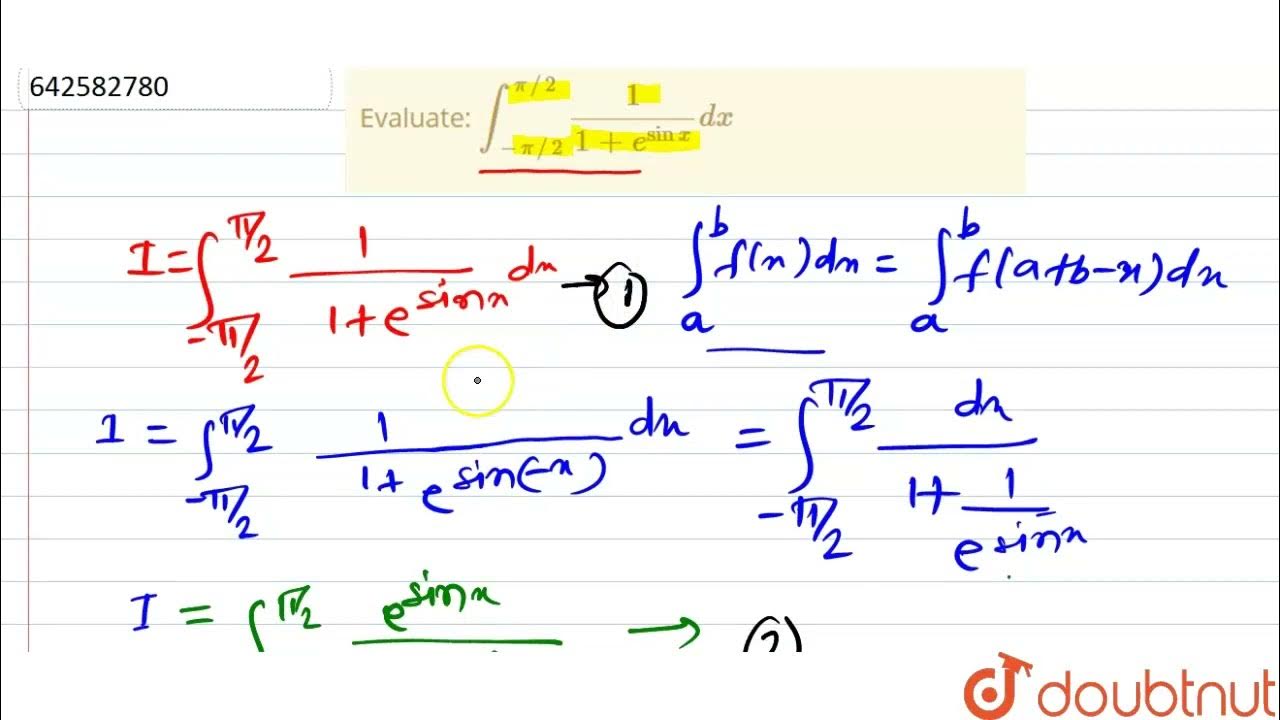 642582780
Evaluate: ∫_{-π/2}^{π/2} 1/(1 + e^{sin x}) dx
I = ∫_{-π/2}^{π/2} 1/(1+e^{sin x}) dx → ① ∫_a^b f(x) dx = ∫_a^b f(a+b-x) dx
I = ∫_{-π/2}^{π/2} 1/(1+e^{sin(-x)}) dx = ∫_{-π/2}^{π/2} dx/(1+1/e^{sin x})
I = ∫^{π/2} e^{sin x} → (2)
doubtnut